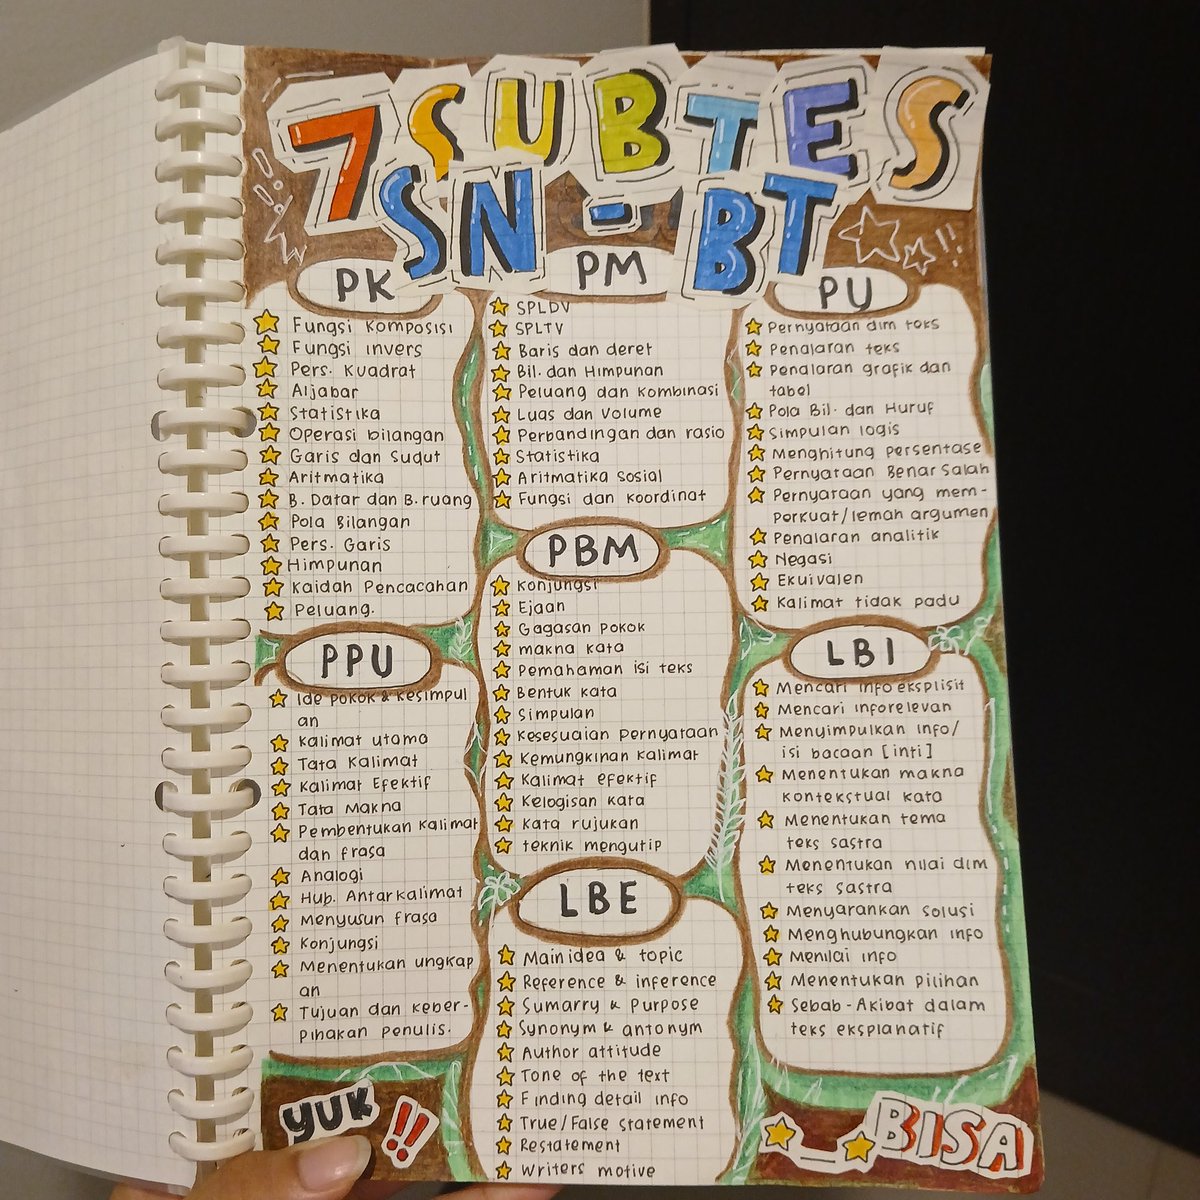 7 SUBTES
SN-BT
PK
Fungsi Komposisi
Fungsi invers
Pers. Kuadrat
Aljabar
Statistika
Operasi bilangan
Garis dan Sudut
Aritmatika
B. Datar dan B. ruang
Pola Bilangan
Pers. Garis
Himpunan
Kaidah Pencacahan
Peluang.
PM
SPLDV
SPLTV
Baris dan deret
Bil. dan Himpunan
Peluang dan Kombinasi
Luas dan Volume
Perbandingan dan rasio
Statistika
Aritmatika Sosial
Fungsi dan Koordinat
PU
Pernyataan dlm teks
Penalaran teks
Penalaran grafik dan
tabel
Pola Bil. dan Huruf
Simpulan logis
Menghitung persentase
Pernyataan Benar Salah
Pernyataan yang mem-
perkuat/lemah argumen
Penalaran analitik
Negasi
Ekuivalen
Kalimat tidak padu
PPU
Ide pokok & Kesimpul
an
Kalimat utama
Tata Kalimat
Kalimat Efektif
Tata Makna
Pembentukan Kalimat
dan frasa
Analogi
Hub. Antarkalimat
Menyusun frasa
Konjungsi
Menentukan ungkap
an
Tujuan dan Keber-
pihakan penulis.
PBM
Konjungsi
Ejaan
Gagasan Pokok
makna kata
Pemahaman isi teks
Bentuk kata
Simpulan
Kesesuaian Pernyataan
Kemungkinan Kalimat
Kalimat efektif
Kelogisan kata
Kata rujukan
teknik mengutip
LBE
Main idea & topic
Reference & inference
Sumarry & Purpose
Synonym & antonym
Author attitude
Tone of the text
Finding detail info
True/False statement
Restatement
Writers motive
LBI
Mencari info eksplisit
Mencari info relevan
Menyimpulkan info/
isi bacaan [inti]
Menentukan makna
kontekstual kata
Menentukan tema
teks sastra
Menentukan nilai dlm
teks sastra
Menyarankan solusi
Menghubungkan info
Menilai info
Menentukan pilihan
Sebab-Akibat dalam
teks eksplanatif
YUK !!
BISA